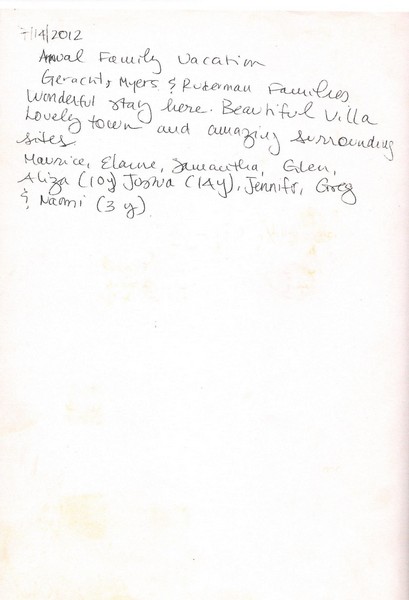 7/14/2012
Annual Family Vacation
Geracht, Myers & Ruderman Families
Wonderful stay here. Beautiful Villa
Lovely town and amazing surrounding
sites
Maurice, Elaine, Samantha, Glen,
Aliza (10y) Joshua (14y), Jennifer, Greg
& Naomi (3 y).